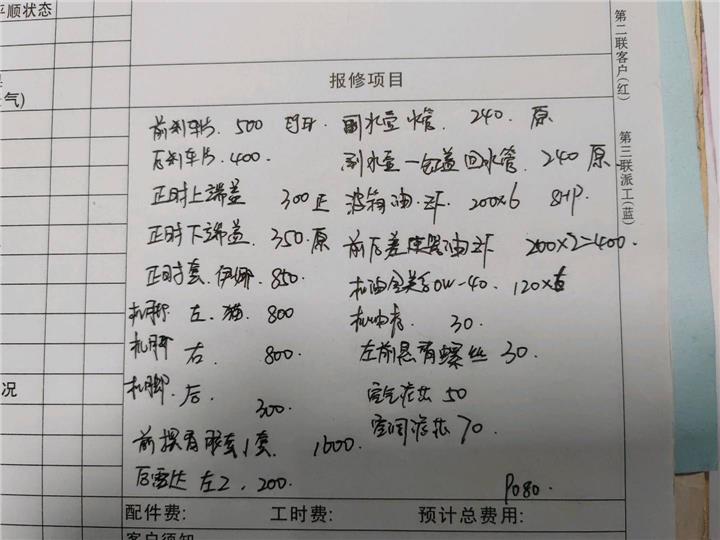 平顺状态
气)
况
报修项目
前刹车片. 500
后刹车片. 400.
正时上端盖 300 正
正时下端盖. 350. 原
正时套. 伊娜. 850
机脚 左. 猫. 800
机脚 右. 800.
机脚. 后. 300.
前摆臂胶套1套 1600.
后雷达 左2. 200.
副水壶水管. 240. 原
副水壶—缸盖回水管. 240 原
波箱油. ZF. 200x6 8HP.
前后差速器油 ZF 200x2=400.
机油全美 0W-40. 120x
机油格 30.
左前悬臂螺丝 30.
空气滤芯 50
空调滤芯 70
配件费: 工时费: 预计总费用:
客户须知
第二联客户(红)
第三联派工(蓝)